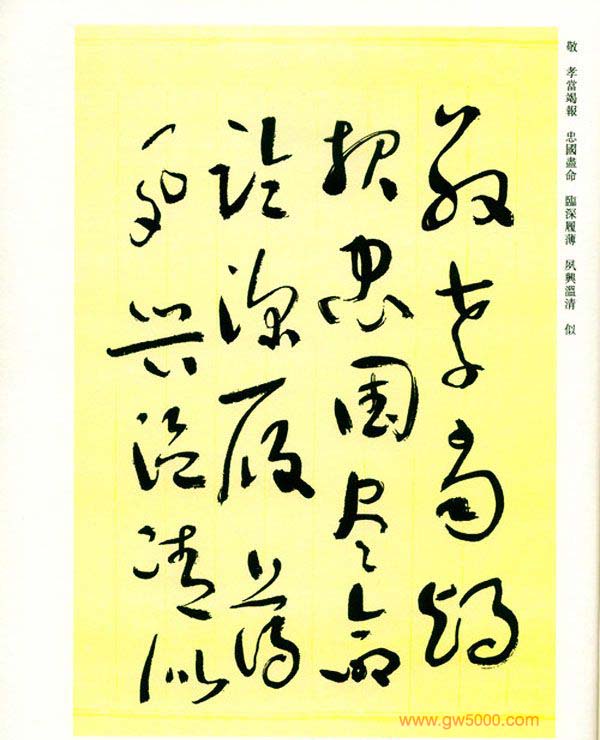 敬 孝當竭報 忠國盡命 臨深履薄 夙興溫清 似
敬孝當竭
報忠國盡命
臨深履薄
夙興溫清似
www.gw5000.com